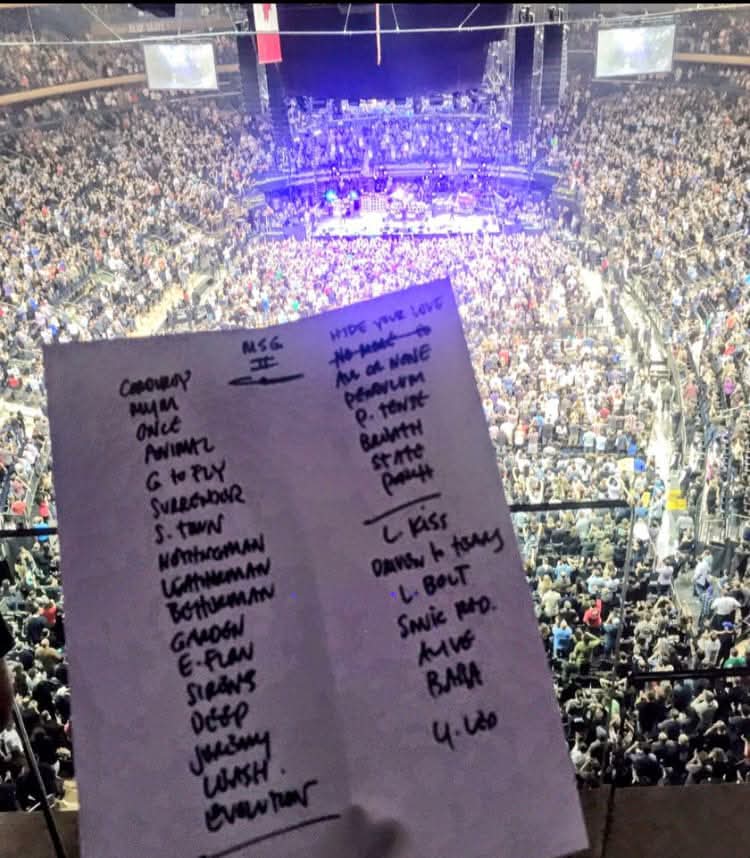 MSG
II
CORDUROY
MYM
ONCE
ANIMAL
G to FLY
SURRENDER
S. TOWN
NOTHINGMAN
LEATHERMAN
BETTERMAN
GARDEN
E-FLOW
SIRENS
DEEP
JEREMY
EVOLUTION
HIDE YOUR LOVE
NO MORE
ALL OR NONE
PENDULUM
P. TENSE
BREATH
STATE
PORCH
L KISS
DRIVEN to TEARS
L. BOLT
SONIC RED.
ALIVE
BABA
Y. LED